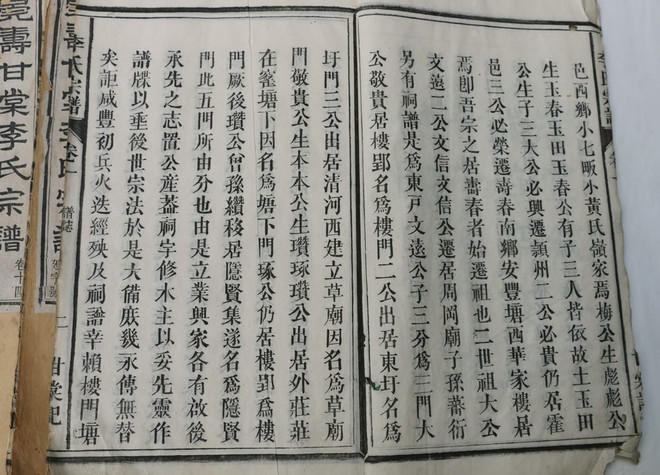 邑西鄉小七畈小黃氏嶺家焉梅公生彪彪公
生玉春玉田玉春公有子三人皆依故土玉田
公生子三大公必興遷潁州二公必貴仍居霍
邑三公必榮遷壽春南鄉安豐塘西華家樓居
焉卽吾宗之居壽春者始遷祖也二世祖大公
文遠二公文信文信公遷居周岡廟子孫蕃衍
另有祠譜是爲東戸文遠公子三分爲三門大
公敬貴居樓郢名爲樓門二公出居東圩名爲
圩門三公出居清河西建立草廟因名爲草廟
門敬貴公生本本公生瓚琢瓚公出居外莊莊
在窰塘下因名爲塘下門琢公仍居樓郢爲樓
門厥後瓚公曾孫纘移居隱賢集遂名爲隱賢
門此五門所由分也由是立業興家各有啟後
承先之志置公產葢祠宇修木主以妥先靈作
譜牒以垂後世宗法於是大備庶幾永傳無替
矣詎咸豐初兵火迭經殃及祠譜幸賴樓門塘
氏宗譜
譜誌
壽甘棠李氏宗譜
卷十四